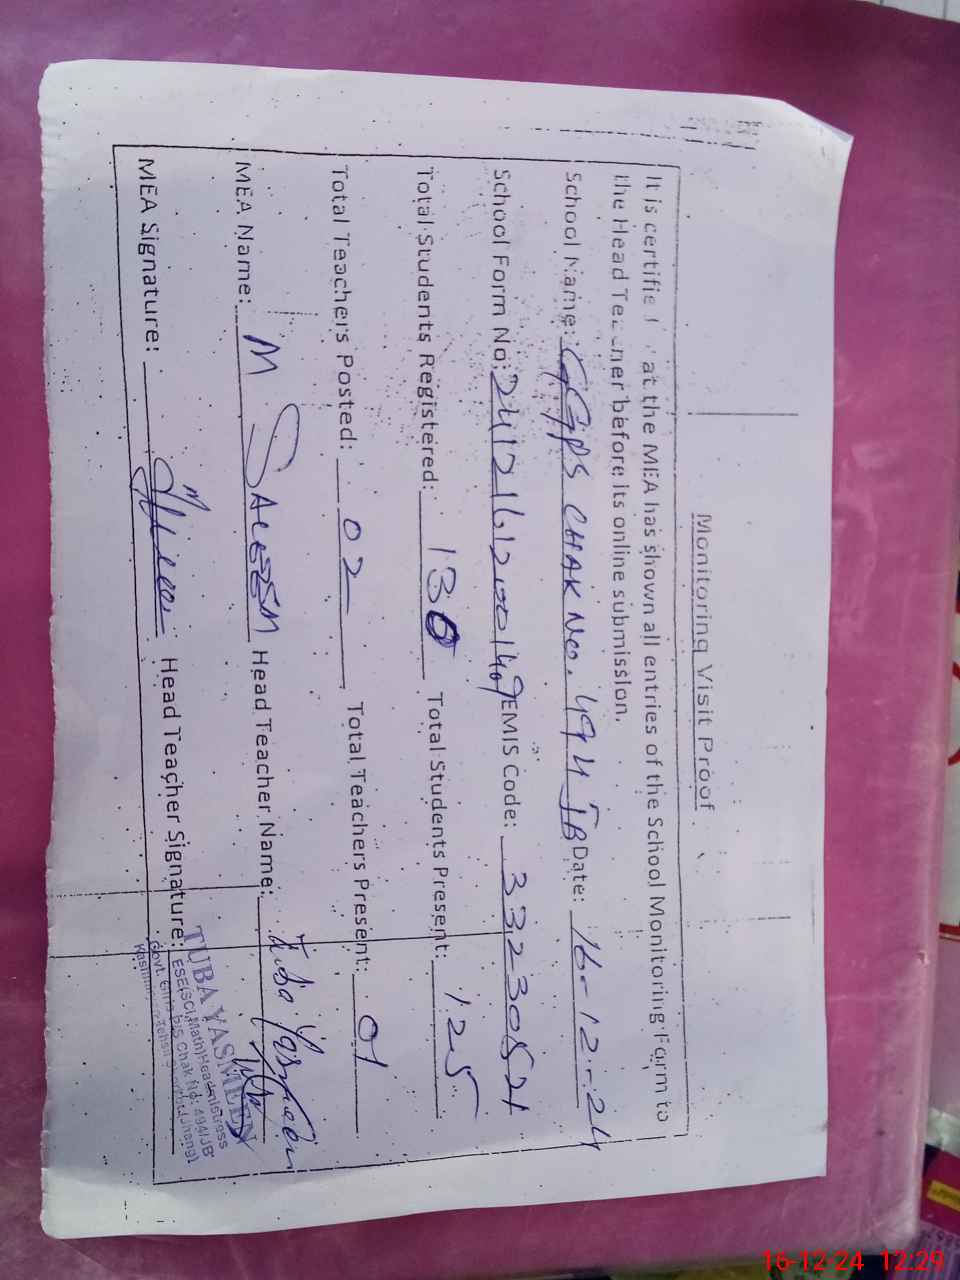 Monitoring Visit Proof
It is certified that the MEA has shown all entries of the School Monitoring Form to
the Head Teacher before its online submission.
School Name: GGPS CHAK No. 494 JB Date: 16-12-24
School Form No: EMIS Code: 33230521
Total Students Registered: 130 Total Students Present: 125
Total Teachers Posted: 02 Total Teachers Present: 01
MEA Name: M SALEEM Head Teacher Name: Tuba Yasmeen
MEA Signature: Head Teacher Signature:
TUBA YASMEEN
ESE(SCI,Math)Headmistress
Govt. Girls P/S Chak No: 494/JB
16-12-24 12:29